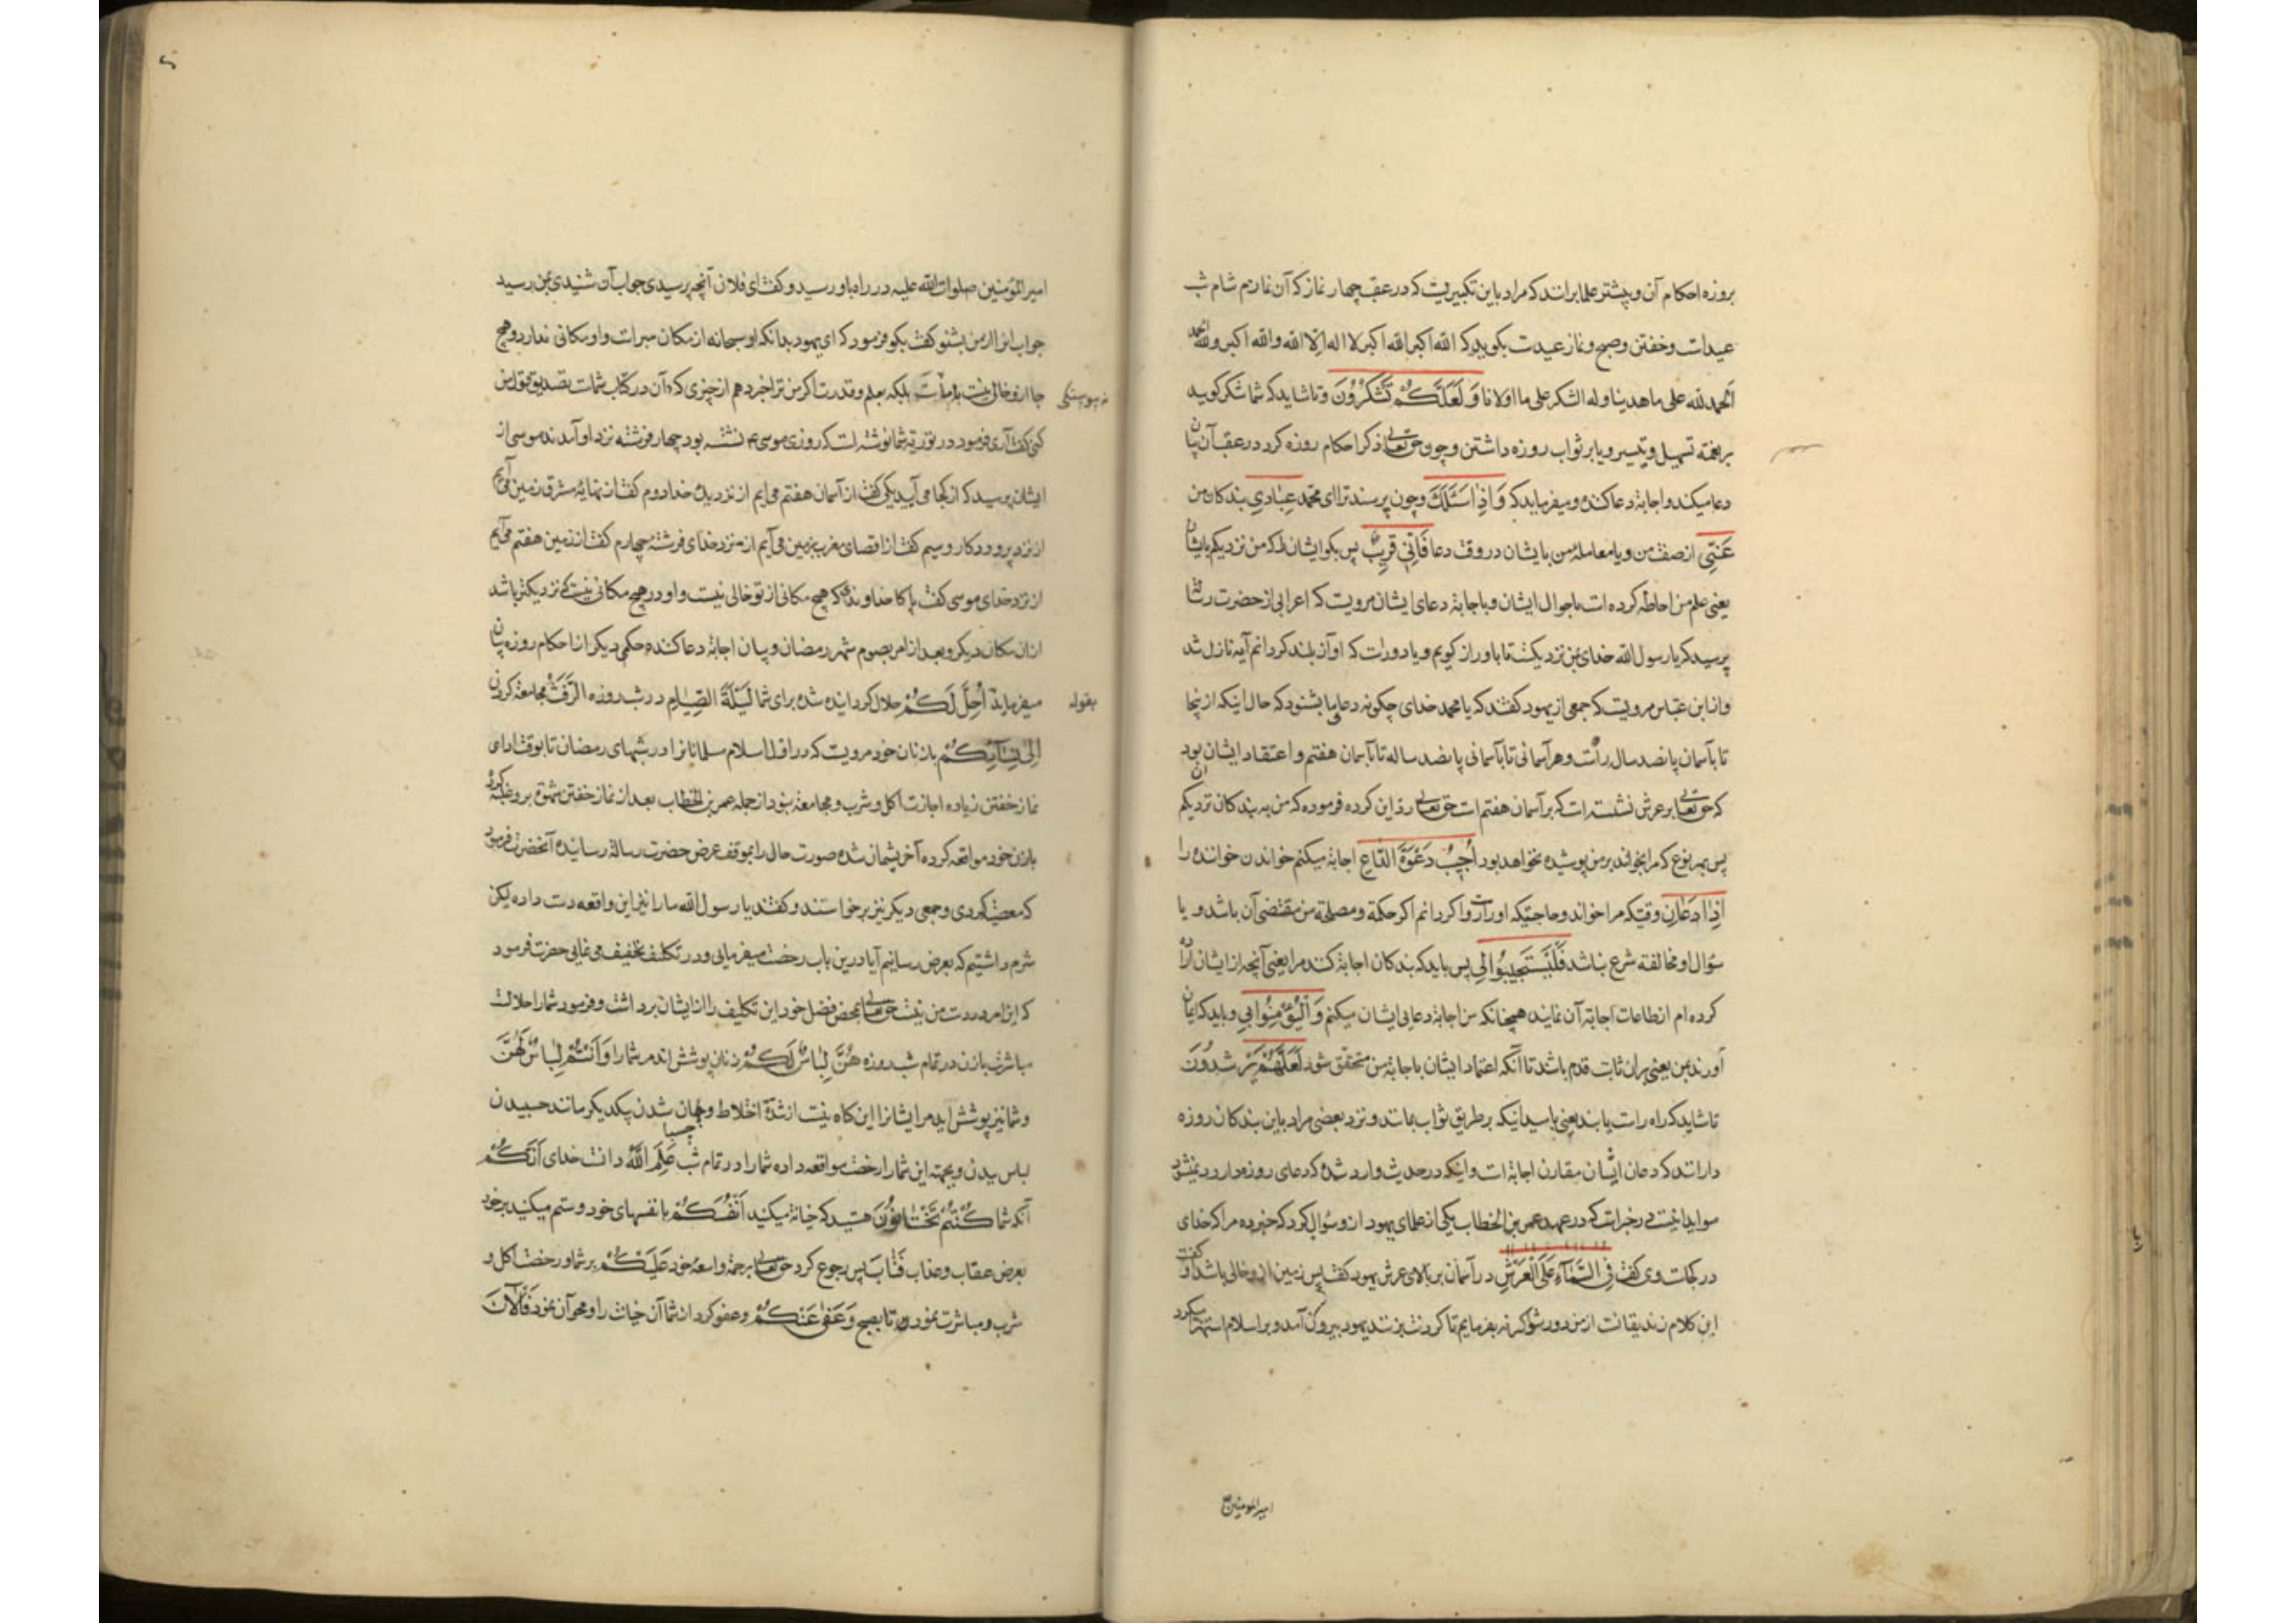 بروزه احکام آن و بیشتر علما برانند که مراد باین تکبیریست که در عقب چهار نماز که آن نماز شام شب
عیدست و خفتن و صبح و نماز عیدست بکویید که الله اکبر الله اکبر لا اله الا الله والله اکبر ولله الحمد
الحمد لله علی ما هدینا وله الشکر علی ما اولانا وَلَعَلَّكُمْ تَشْكُرُونَ وتا شاید که شما شکر کویید
بر تسهیل و تیسیر و یا بر ثواب روزه داشتن و چون حق تعالی ذکر احکام روزه کرد در عقب آن بیان
دعا میکند و اجابة دعا کننده و میفرماید که وَاِذا سَئَلَكَ و چون پرسند ترا ای محمد عِبٰادی بندکان من
عَنّی از صفت من و یا معاملهٔ من با یشان در وقت دعا فَاِنّی قَریبٌ پس بکو ایشان را که من نزدیکم بایشان
یعنی علم من احاطه کرده است باحوال ایشان و باجابة دعای ایشان مرویست که اعرابی از حضرت رسالت
پرسید که یا رسول الله خدای بمن نزدیکست تا باو راز کویم و یا دورات که آواز بلند کردانم آیه نازل شد
و از ابن عباس مرویست که جمعی از یهود کفتند که یا محمد خدای چکونه دعای ما بشنود که حال اینکه از ینجا
تا بآسمان پانصد سال راست و هر آسمانی تا بآسمانی پانصد ساله تا بآسمان هفتم و اعتقاد ایشان آن بود
که حق تعالی بر عرش نشسته است که بر آسمان هفتم است حق تعالی رد این کرده فرموده که من به بندکان نزدیکم
پس بهر نوع که مرا بخوانند بر من پوشیده نخواهد بود اُجیبُ دَعْوَةَ الدّاعِ اجابة میکنم خواندن خواننده را
اِذا دَعانِ وقتیکه مرا خواند و حاجتیکه اوراست روا کردانم اکر حکمة و مصلحة من مقتضی آن باشد و یا
سؤال او مخالفته شرع نباشد فَلْيَسْتَجيبُوا لی پس باید که بندکان اجابة کنند مرا یعنی آنچه از ایشان اراده
کرده ام از طاعات اجابة آن نمایند همچنانکه من اجابة دعای ایشان میکنم وَلْيُؤْمِنُوا بی و باید که ایمان
آورند بمن یعنی بران ثابت قدم باشند تا آنکه اعتماد ایشان باجابة من متحقق شود لَعَلَّهُمْ يَرْشُدُونَ
تا شاید که راه راست یابند یعنی بامید اینکه بر طریق ثواب بمانند و نزد بعضی مراد باین بندکان روزه
دارانند که دعای ایشان مقارن اجابة است و اینکه در حدیث وارد شده که دعای روزه دار رد نمیشود
در خبرات که در عهد عمر بن الخطاب یکی از علمای یهود از و سؤال کرد که خبر ده مرا که خدای
در کجاست وی کفت فِی السَّمآءِ عَلَی الْعَرْشِ در آسمان بر بالای عرش یهود کفت پس زمین ازو خالی باشد او کفت
این کلام زندیقانست از من دور شو اکر نه بفرمایم تا کردنت بزنند یهود بیرون آمد و بر اسلام استهزا میکرد
امیر المومنین
امیر المؤمنین صلوات الله علیه در راه باو رسید و کفت ای فلان آنچه پرسیدی و جواب آن شنیدی بمن رسید
جواب انرا از من بشنو کفت بکو فرمود که ای یهود بدانکه او سبحانه از مکان مبرات و او مکانی ندارد و هیچ
جا ازو خالی نیست بلکه بعلم و قدرت اکر من ترا خبر دهم از چیزی که آن در کتاب شماست تصدیق قول من
کنی کفت آری فرمود در توریة شما نوشته است که روزی موسی نشسته بود چهار فرشته نزد او آمدند موسی از
ایشان پرسید که از کجا می آیید یکی کفت از آسمان هفتم می آیم از نزدیک خدا دوم کفت از نهایة مشرق زمین می آیم
از نزد پروردکار و سیم کفت از اقصای مغرب زمین می آیم از نزد خدای فرشتهٔ چهارم کفت از زمین هفتم می آیم
از نزد خدای موسی کفت پاکا خداوندی که هیچ مکانی از تو خالی نیست و او در هیچ مکانی نیست که نزدیکتر باشد
از ان مکان دیکر و بعد از امر بصوم شهر رمضان و بیان اجابة دعا کننده حکمی دیکر از احکام روزه بیان
میفرماید بقوله اُحِلَّ لَكُمْ حلال کردانیده شده برای شما لَيْلَةَ الصِّيٰامِ در شب روزه الرَّفَثُ مجامعة کردن
اِلیٰ نِسآئِكُمْ با زنان خود مرویست که در اول اسلام مسلمانانرا در شبهای رمضان تا بوقت ادای
نماز خفتن زیاده اجازت اکل و شرب و مجامعة نبود از جمله عمر بن الخطاب بعد از نماز خفتن شهوة برو غلبه کرد
با زن خود مواقعه کرده آخر پشیمان شده صورت حال را بموقف عرض حضرت رسالة رسانیده آنحضرت فرمود
که معصیت کردی و جمعی دیکر نیز برخواستند و کفتند یا رسول الله ما را نیز این واقعه دست داده لیکن
شرم داشتیم که بعرض رسانیم آیا درین باب رخصت میفرمایی و در تکلیف تخفیف می نمایی حضرت فرمود
که این امر در دست من نیست حق تعالی بمحض فضل خود این تکلیف را از ایشان برداشت و فرمود شما را حلالست
مباشرت با زن در تمام شب روزه هُنَّ لِباسٌ لَكُمْ زنان پوشش اند مر شما را وَاَنْتُمْ لِباسٌ لَهُنَّ
و شما نیز پوشش اید مر ایشانرا این کنایه نیست از شدة اختلاط و چسبان شدن یکدیکر مانند چسبیدن
لباس ببدن و بجهة این شما را رخصت مواقعه داده شما را در تمام شب عَلِمَ اللّٰهُ دانست خدای اَنَّكُمْ
آنکه شما كُنْتُمْ تَخْتانُونَ هستید که خیانة میکنید اَنْفُسَكُمْ با نفسهای خود و ستم میکنید بر خود
بعرض عقاب و عذاب فَتابَ پس رجوع کرد حق تعالی برحمة واسعهٔ خود عَلَيْكُمْ بر شما و رخصت اکل و
شرب و مباشرت نمود تا بصبح وَعَفیٰ عَنْكُمْ و عفو کرد از شما آن خیانت را و محو آن نمود فَالْآنَ